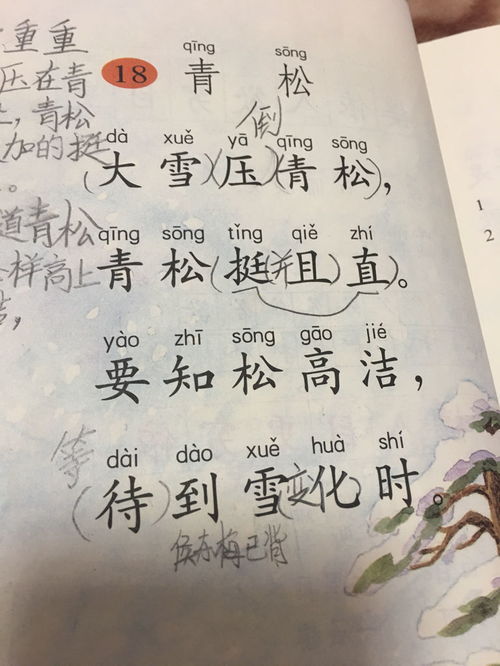 重重
压在青
，青松
加的挺
。
道青松
样高上
，
qīng sōng
18 青 松
倒
dà xuě yā qīng sōng
(大雪)(压)(青松)，
qīng sōng tǐng qiě zhí
青松(挺(并)且)直)。
yào zhī sōng gāo jié
要知松高洁，
等
dài dào xuě huà shí
(待)到雪(变化)时。
侯东梅已背
1
2